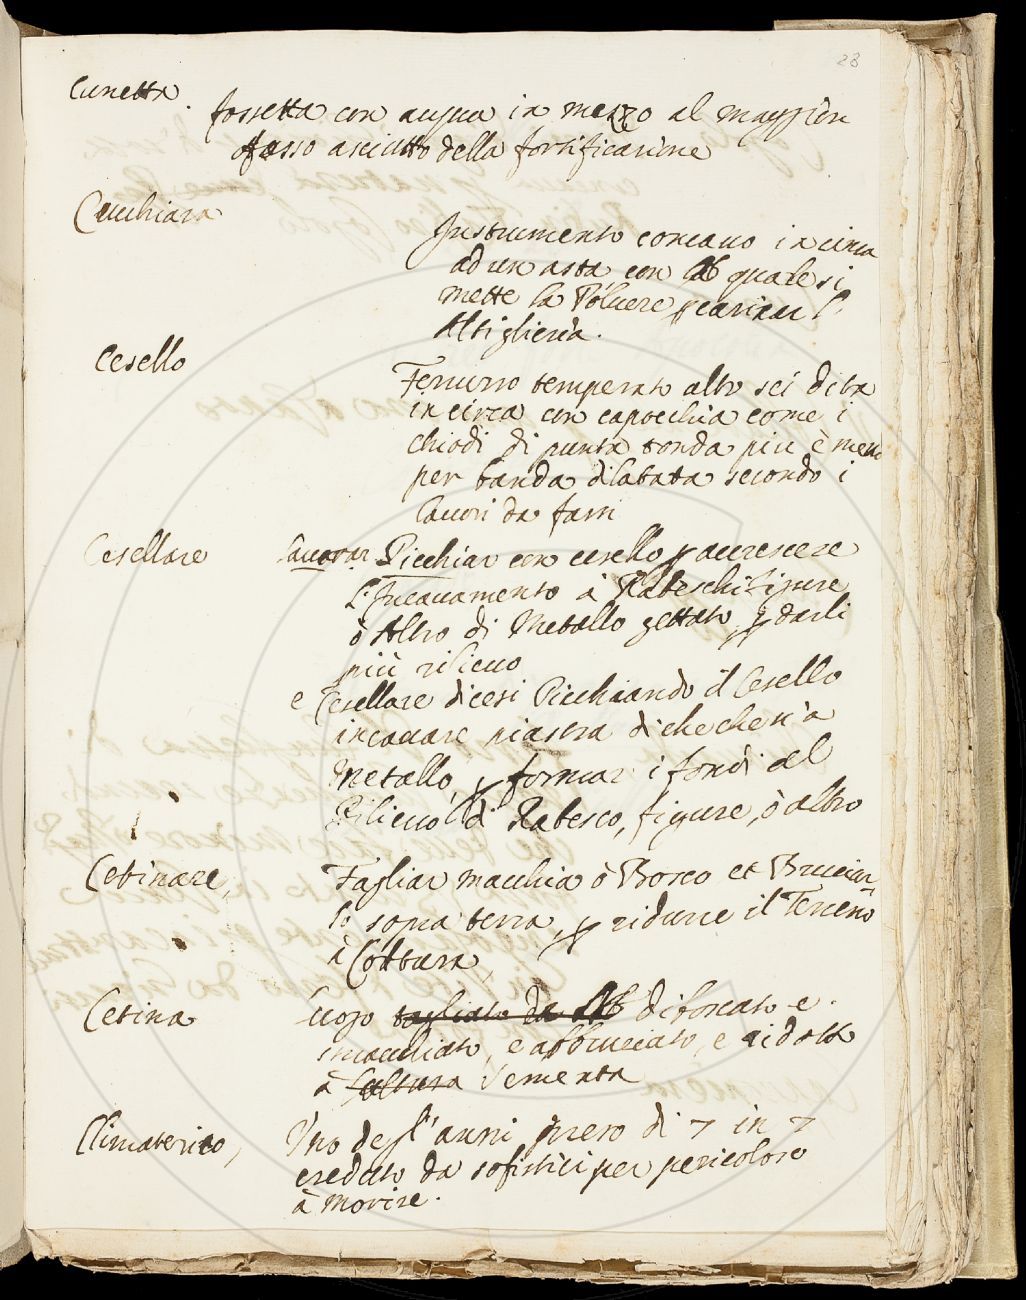 28
Cunetta.
fossetta con acqua in mezzo al maggior
fosso asciutto della fortificazione
Cucchiara
Instrumento concavo in cima
ad un asta con la quale si
mette la Poluere p caricar l'
Altiglieria.
Cesello
Ferruzzo temperato alto sei dita
in circa con capocchia come i
chiodi di punta tonda piu è meno
per banda dilatata secondo i
lauori da farsi
Cesellare lauorar Picchiar con cesello p accrescere
l'Incauamento à Rabeschi figure
ò Altro di Metallo gettato p darli
più rilieuo
e Cesellare dicesi Picchiando il Cesello
incauare piastra di che che sia
Metallo, p formar i fondi al
Rilieuo di Rabesco, figure, ò altro
Cetinare, Tagliar macchia ò Bosco et Bruciar
lo sopra terra, p ridurre il Terreno
à Cottura
Cetina luogo tagliato da difoscato e
smacchiato, e abbruciato, e ridotto
à Cultura Sementa
Climaterico, Uno degl'anni preso di 7 in 7
creduto da sofistici per pericoloso
à morire.